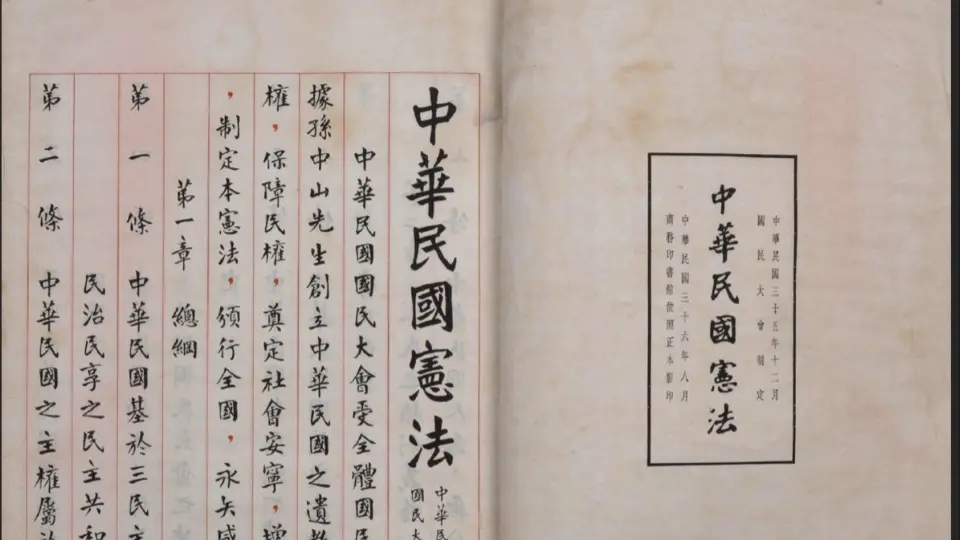 中華民國三十五年十二月
國民大會制定
中華民國憲法
中華民國三十六年八月
商務印書館依照正本影印
中華民國憲法
中華民
國民大
中華民國國民大會受全體國民
據孫中山先生創立中華民國之遺教
權，保障民權，奠定社會安寧，增
，制定本憲法，頒行全國，永矢咸
第一章 總綱
第一條 中華民國基於三民主
民治民享之民主共和
第二條 中華民國之主權屬於